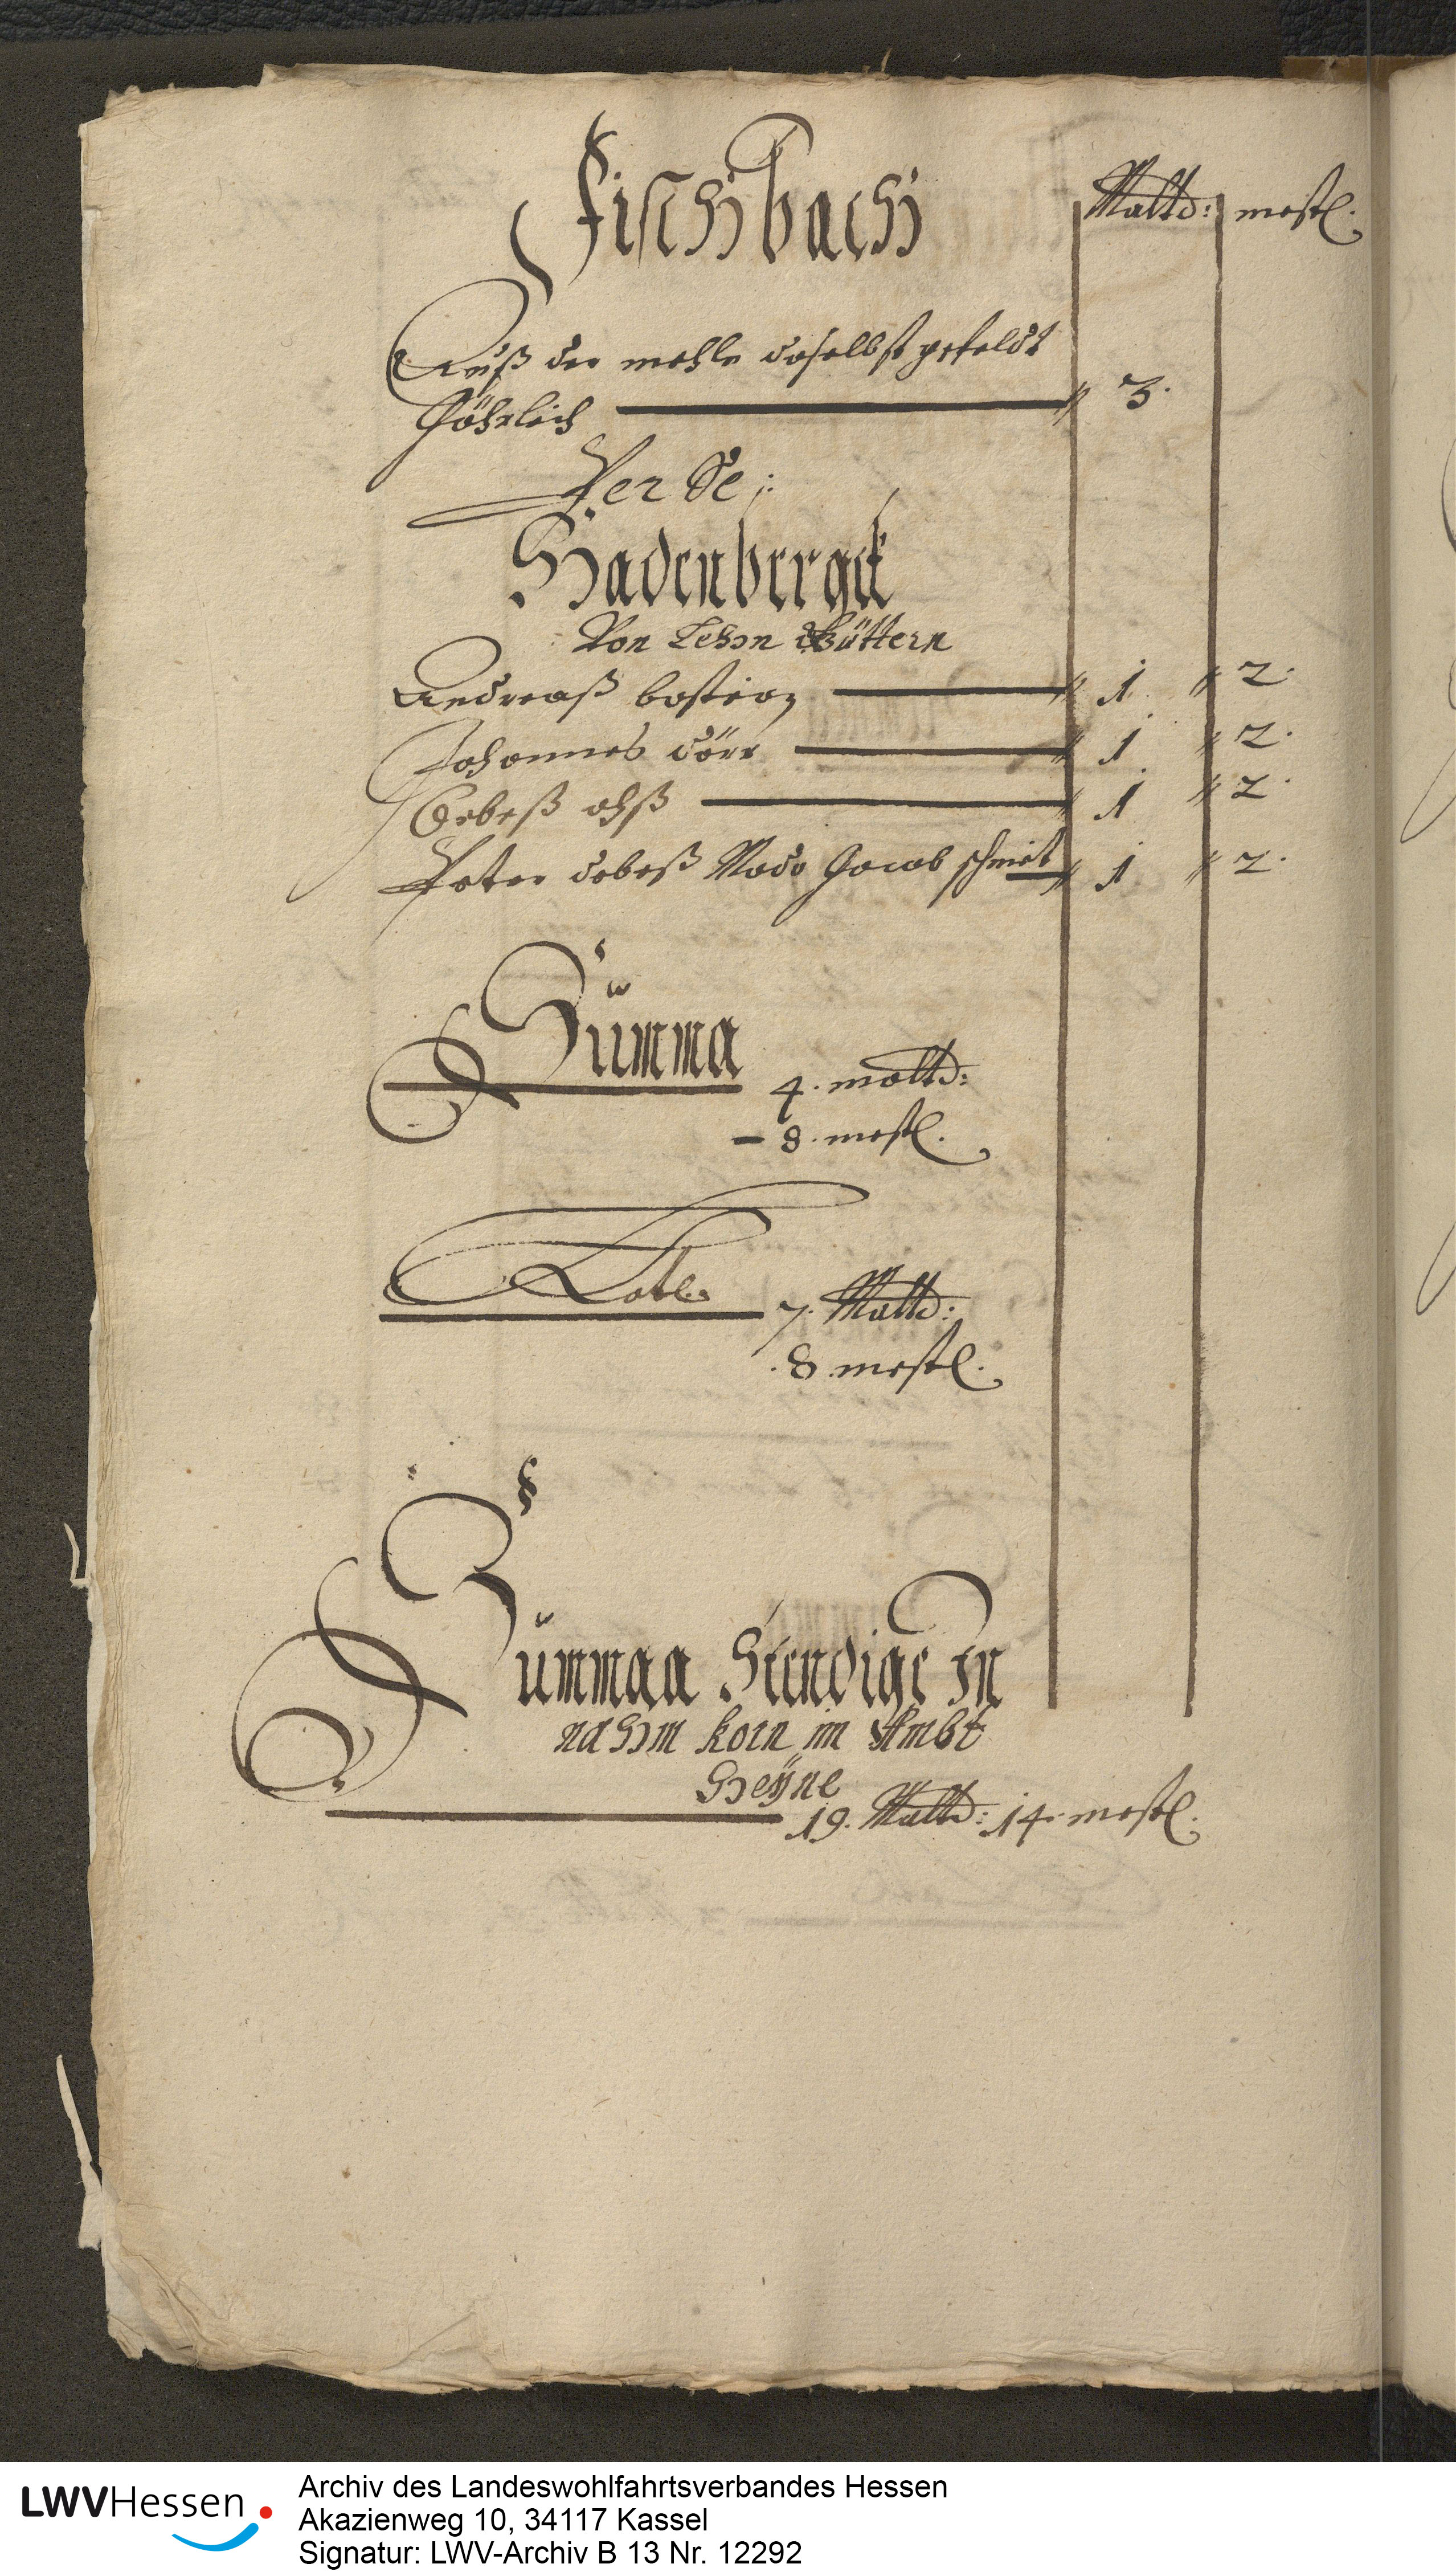 Fischbach
Maltd: mestl.
Auß der mohle daselbst gefeldt
Jährlich 3.
Per Se:
Hadenbergck
Von Lehen Güttern
Andreaß bastian 1 2.
Johannes dörr 1 2.
Debeß 1 2.
Peter debeß Modo Jacob schmit 1 2.
Summa
4. maltd:
8. mestl.
Latus
7. Maltd:
8. mestl.
Summaa Stendige In
nahm korn im Ambt
Heÿne
19. Maltd: 14. mestl.
LWVHessen
Archiv des Landeswohlfahrtsverbandes Hessen
Akazienweg 10, 34117 Kassel
Signatur: LWV-Archiv B 13 Nr. 12292